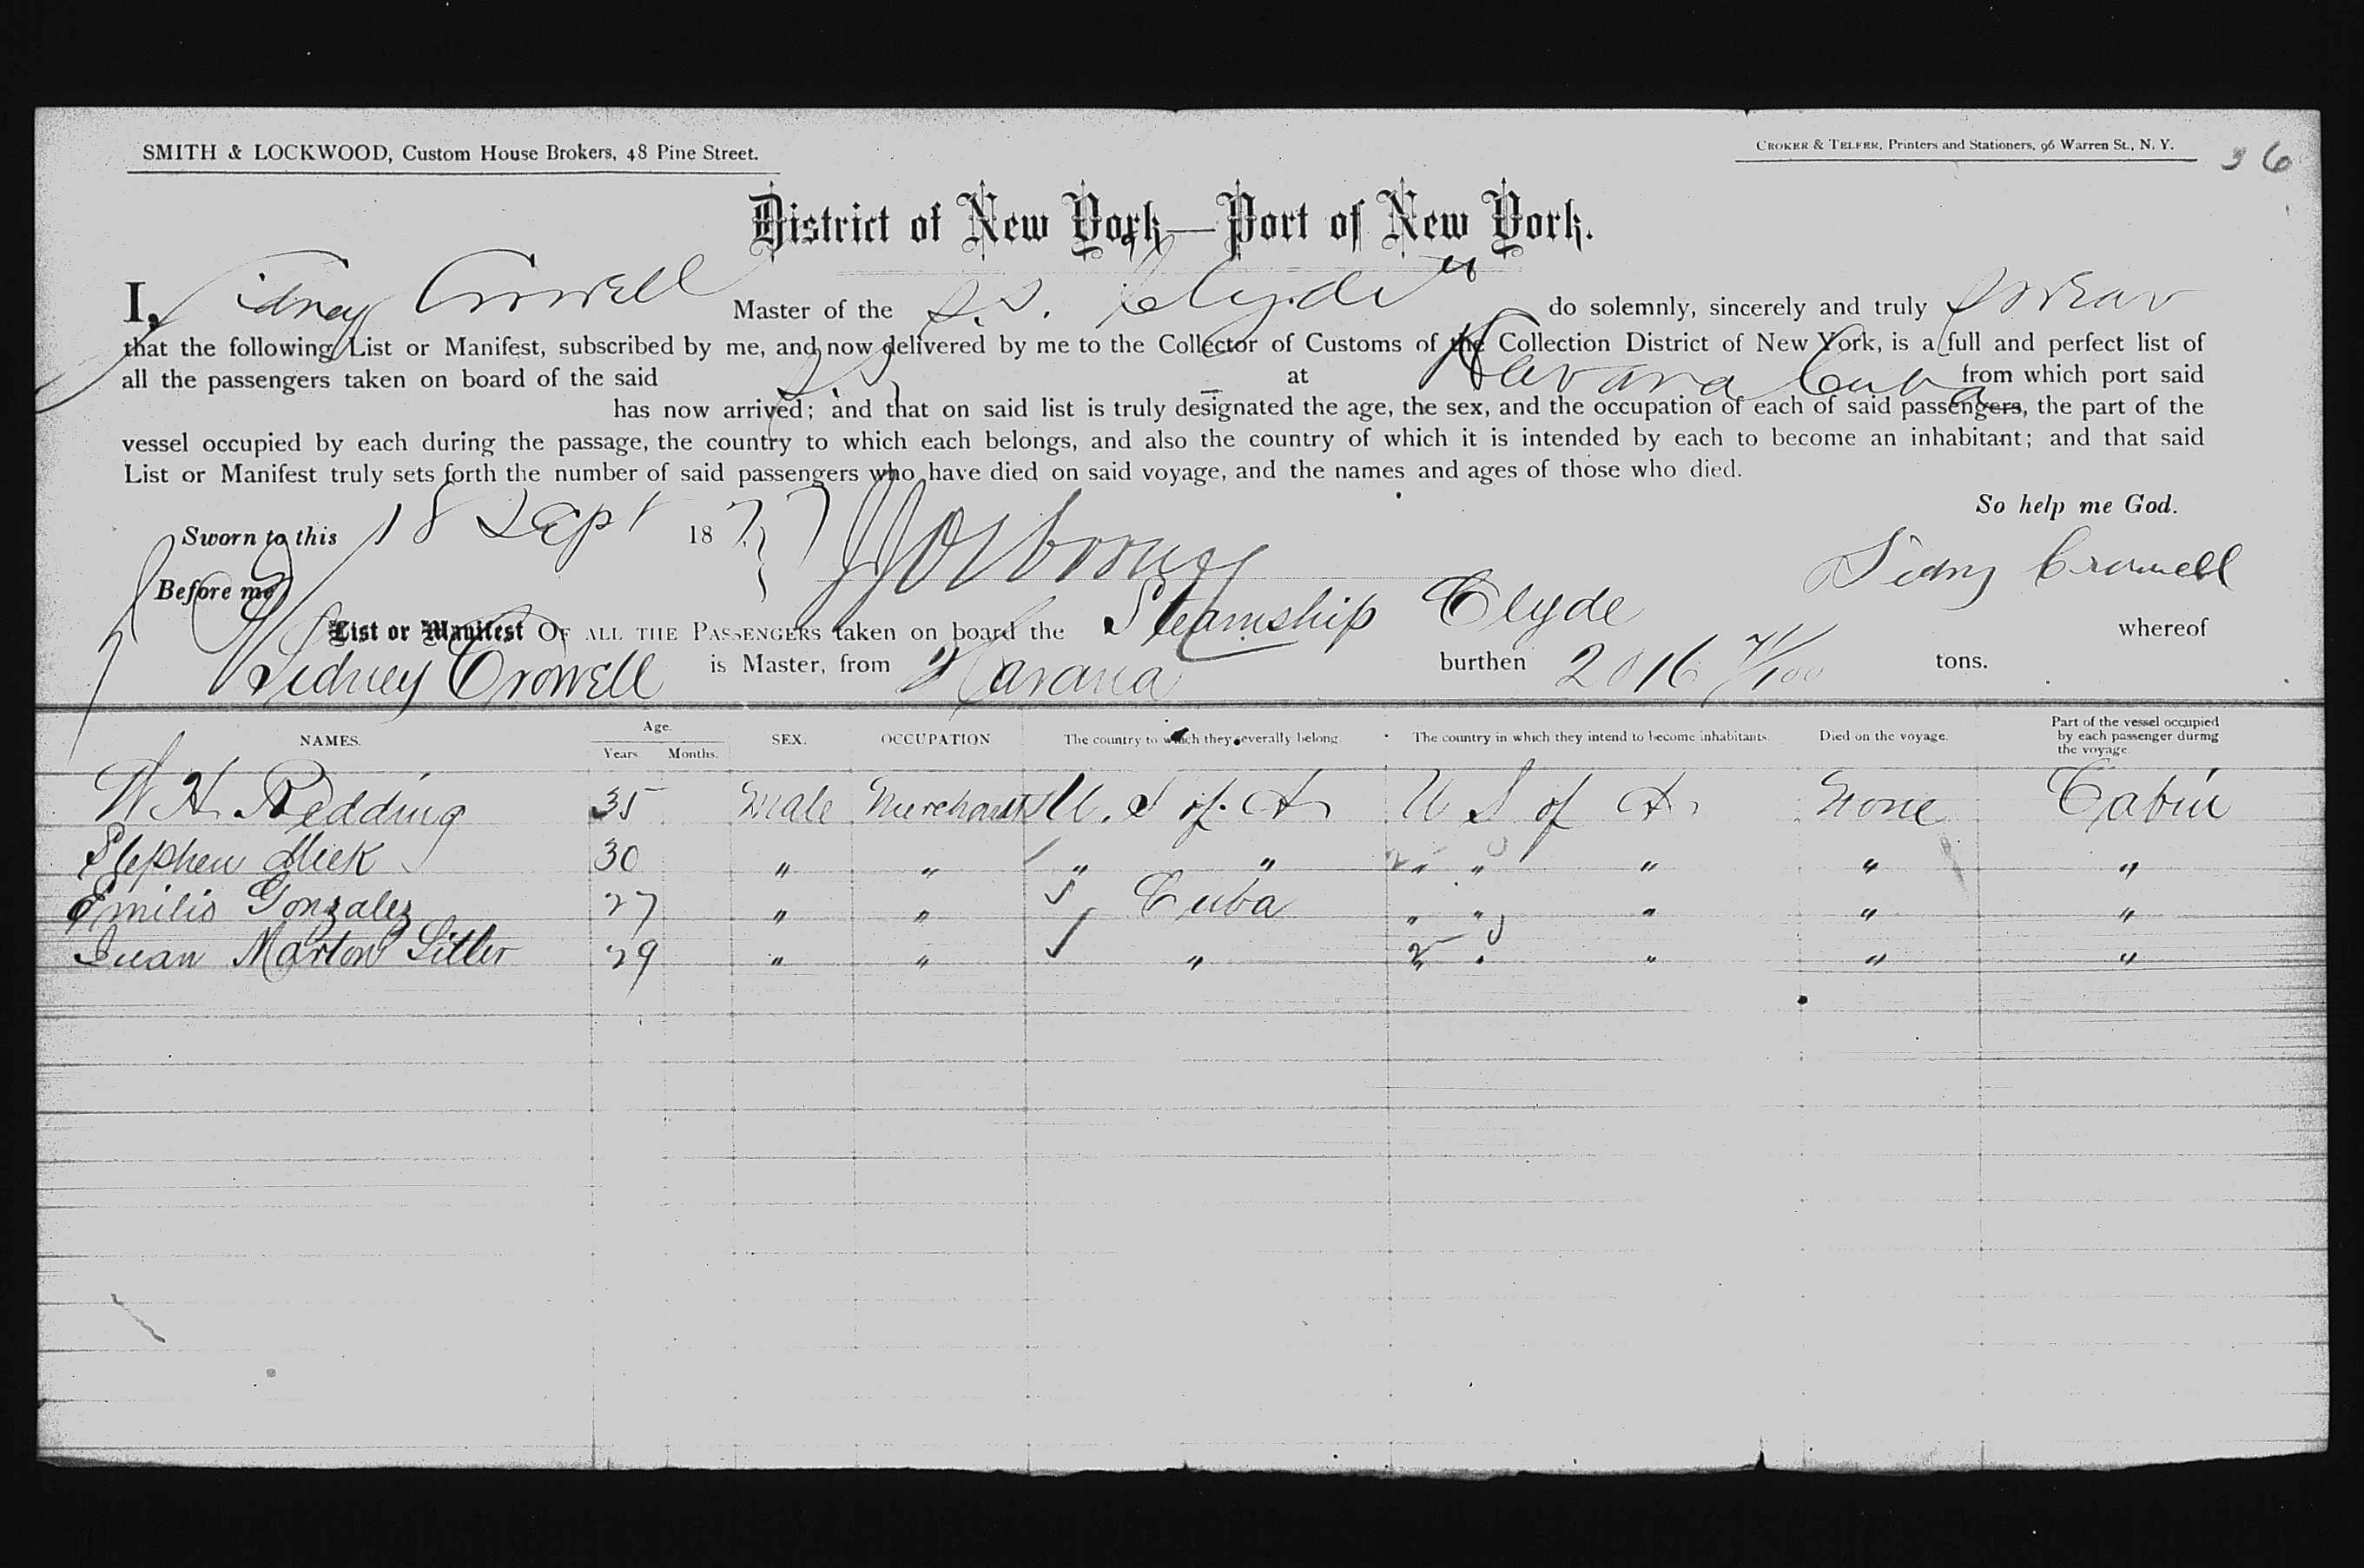 SMITH & LOCKWOOD, Custom House Brokers, 48 Pine Street.
CROKER & TELFER, Printers and Stationers, 96 Warren St., N. Y.
36
District of New York—Port of New York.
I, Sidney Crowell Master of the S.S. "Clyde" do solemnly, sincerely and truly swear
that the following List or Manifest, subscribed by me, and now delivered by me to the Collector of Customs of the Collection District of New York, is a full and perfect list of
all the passengers taken on board of the said S.S. at Havana Cuba from which port said
has now arrived; and that on said list is truly designated the age, the sex, and the occupation of each of said passengers, the part of the
vessel occupied by each during the passage, the country to which each belongs, and also the country of which it is intended by each to become an inhabitant; and that said
List or Manifest truly sets forth the number of said passengers who have died on said voyage, and the names and ages of those who died.
So help me God.
Sworn to this 18 Sept 1877
Sidney Crowell
Before me
List or Manifest OF ALL THE PASSENGERS taken on board the Steamship Clyde whereof
Sidney Crowell is Master, from Havana burthen 2016 71/100 tons.
NAMES. Age. Years. Months. SEX. OCCUPATION The country to which they severally belong. The country in which they intend to become inhabitants. Died on the voyage. Part of the vessel occupied by each passenger during the voyage.
W H. Redding 35 Male Merchant U. S of A U S of A None Cabin
Stephen Meek 30 " " " " " " " " "
Emilio Gonzalez 27 " " Cuba " " " " "
Juan Marton 29 " " " " " " "